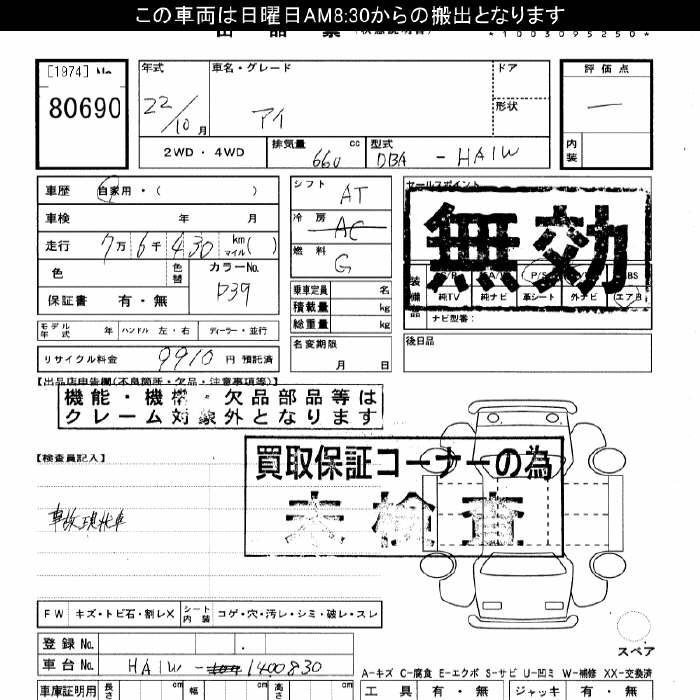 この車両は日曜日AM8:30からの搬出となります
出品票
*1003095250*
[1974] No.
80690
年式
22/10 月
車名・グレード
アイ
ドア
形状
評価点
一
内装
2WD・4WD
排気量 660 cc
型式 DBA - HA1W
車歴 自家用・( )
車検 年 月
走行 7万 6千 430 km マイル ( )
色
色替
カラーNo. D39
保証書 有・無
シフト AT
冷房 AC
燃料 G
乗車定員 名
積載量 kg
総重量 kg
セールスポイント
無効
装備品
P/S
ABS
純TV 純ナビ 革シート 外ナビ エアB
ナビ型番:
モデル年式 年 ハンドル 左・右 ディーラー・並行
リサイクル料金 9910 円 預託済
名変期限
月 日
後日品
【出品店申告欄(不良箇所・欠品・注意事項等)】
機能・機構・欠品部品等は
クレーム対象外となります
【検査員記入】
買取保証コーナーの為
未検査
事故現状車
FW キズ・トビ石・割レX シート内装 コゲ・穴・汚レ・シミ・破レ・スレ
登録No.
車台No. HA1W - 1400830
スペア
A-キズ C-腐食 E-エクボ S-サビ U-凹ミ W-補修 XX-交換済
車庫証明用 長さ cm 幅 cm 高さ cm
工具 有・無 ジャッキ 有・無